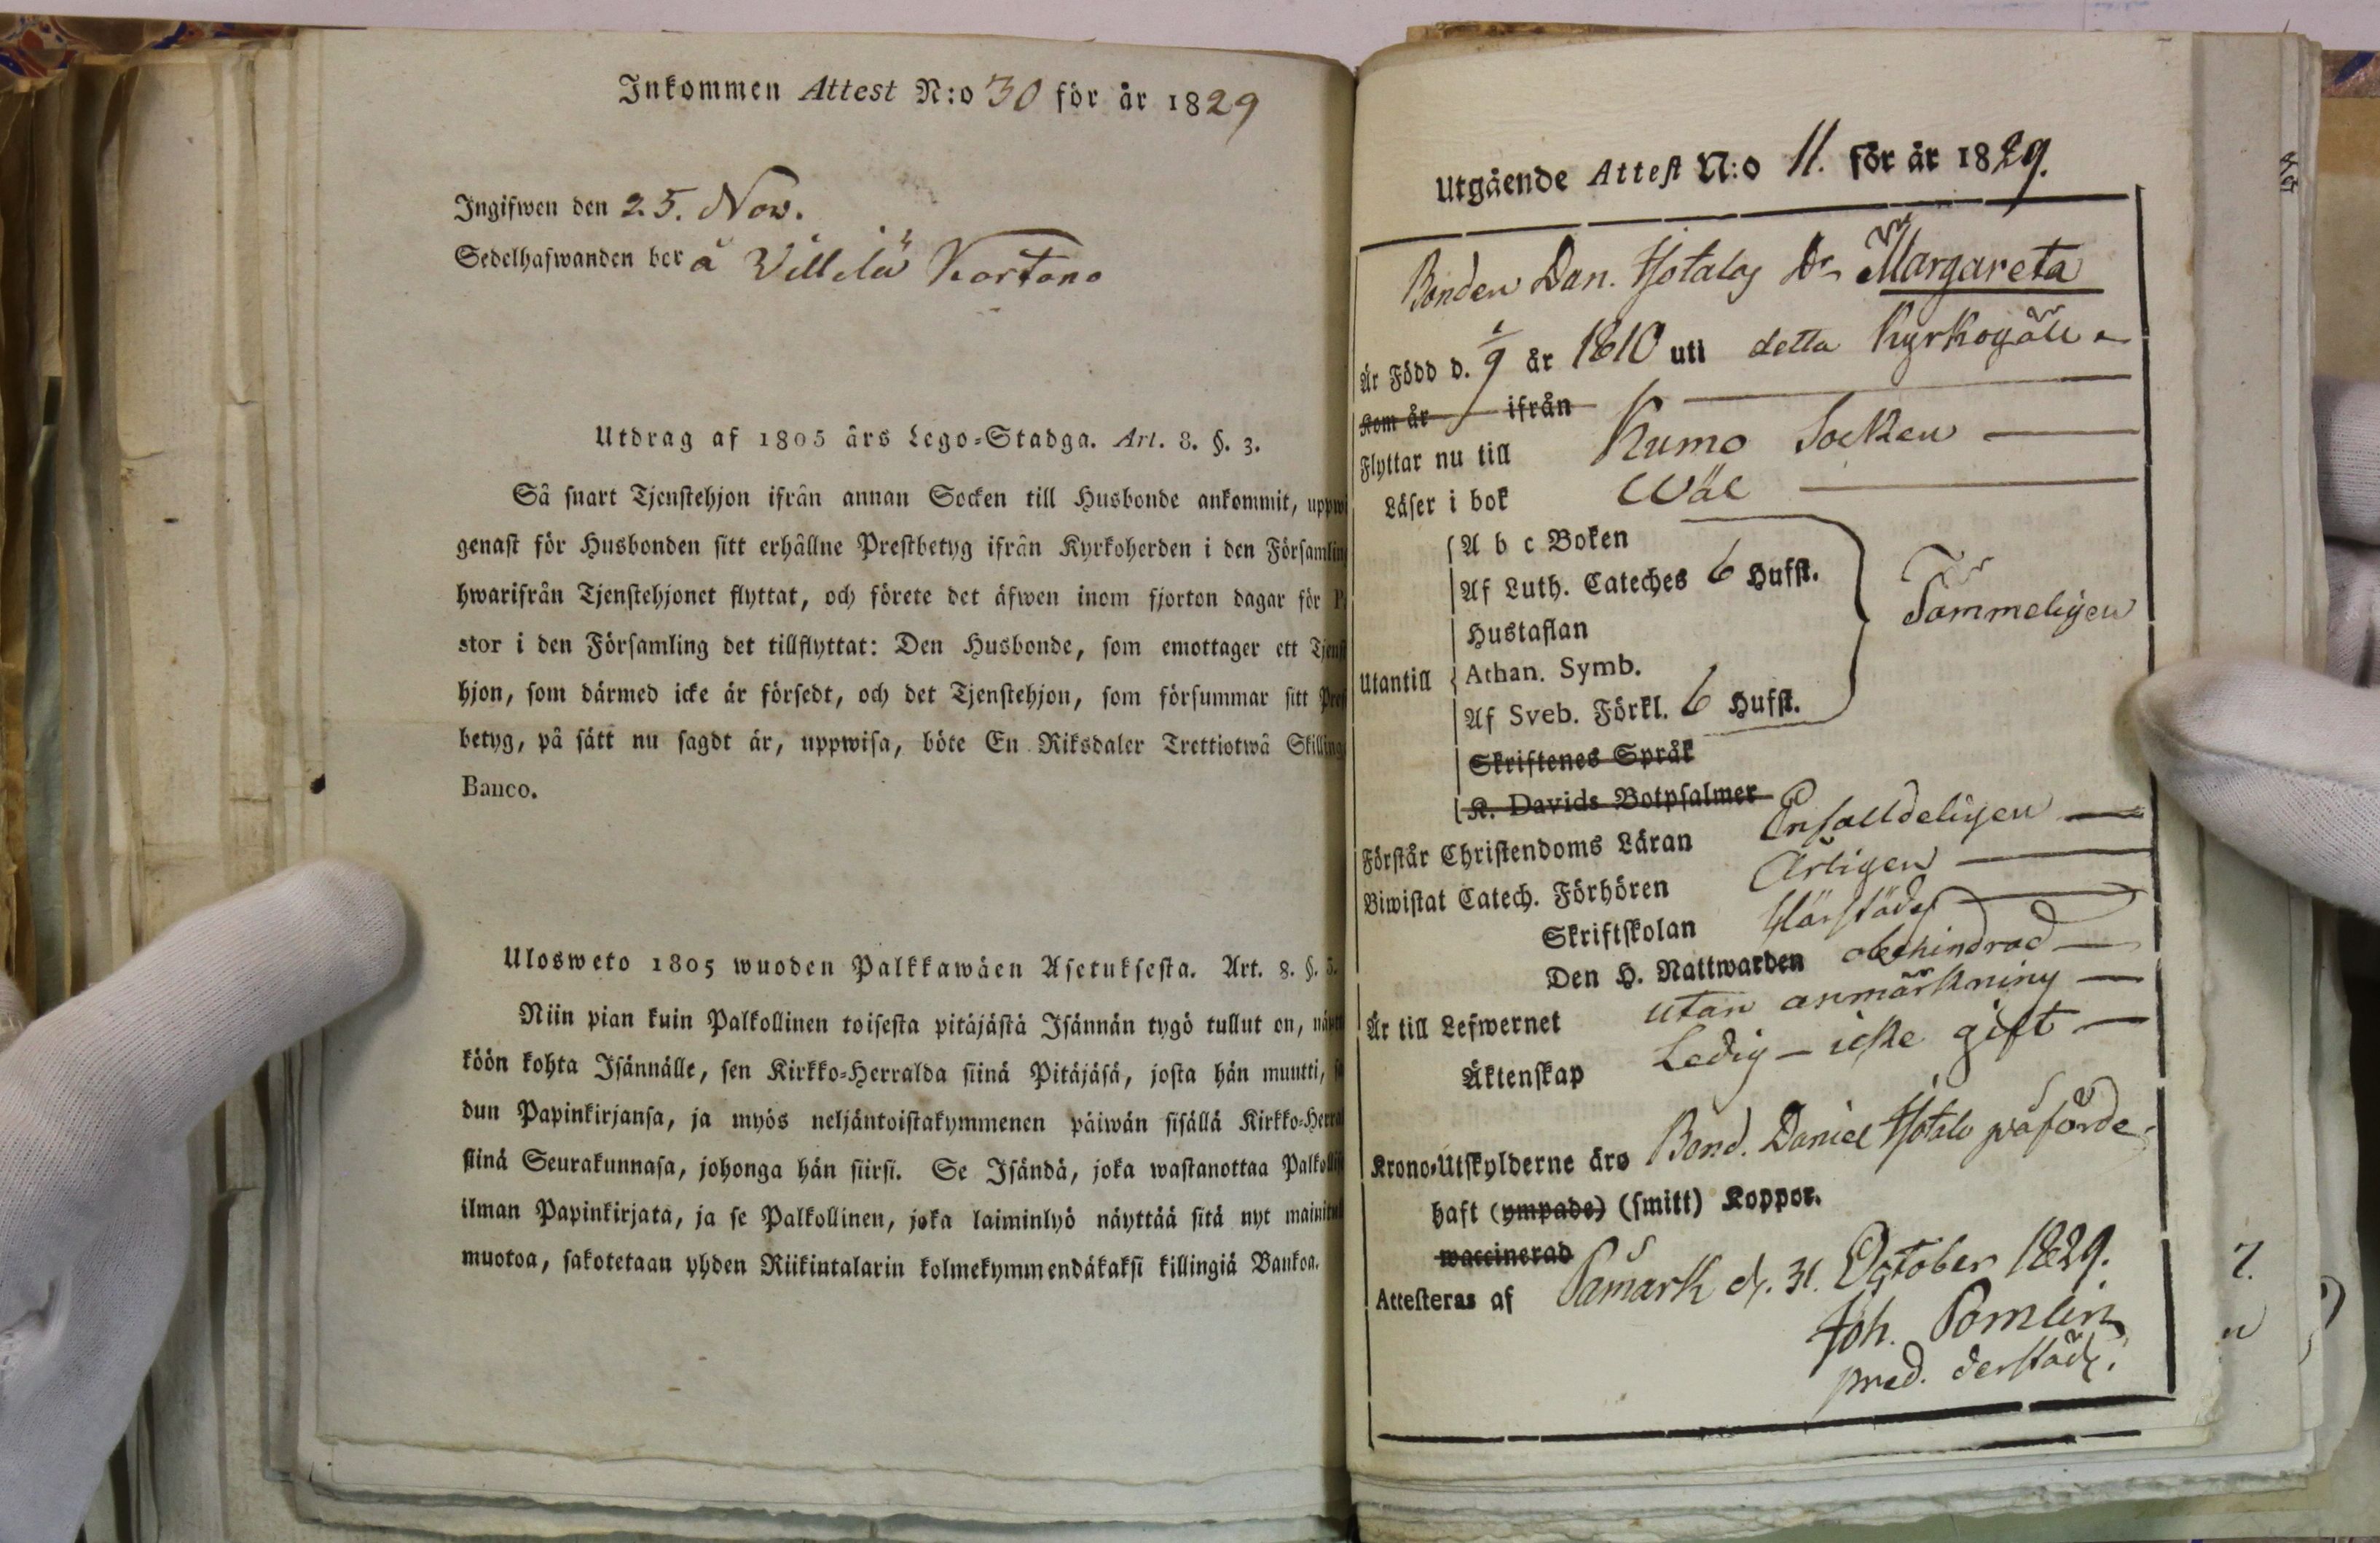 Inkommen Attest N:o 30 för år 1829
Ingifwen den 25. Nov.
Sedelhafwanden bor å Villilä Kortono
Utdrag af 1805 års Lego-Stadga. Art. 8. §. 3.
Så snart Tjenstehjon ifrån annan Socken till Husbonde ankommit, uppw
genast för Husbonden sitt erhållne Prestbetyg ifrån Kyrkoherden i den Församlin
hwarifrån Tjenstehjonet flyttat, och förete det äfwen inom fjorton dagar för P
stor i den Församling det tillflyttat: Den Husbonde, som emottager ett Tjenst
hjon, som därmed icke är försedt, och det Tjenstehjon, som försummar sitt Pres
betyg, på sätt nu sagdt är, uppwisa, böte En Riksdaler Trettiotwå Skilling
Banco.
Ulosweto 1805 wuoden Palkkawäen Asetuksesta. Art. 8. §. 3.
Niin pian kuin Palkollinen toisesta pitäjästä Isännän tygö tullut on, näyt
köön kohta Isännälle, sen Kirkko-Herralda siinä Pitäjäsä, josta hän muutti, s
dun Papinkirjansa, ja myös neljäntoistakymmenen päiwän sisällä Kirkko-Herra
siinä Seurakunnasa, johonga hän siirsi. Se Isändä, joka wastanottaa Palkollis
ilman Papinkirjata, ja se Palkollinen, joka laiminlyö näyttää sitä nyt mainitul
muotoa, sakotetaan yhden Riikintalarin kolmekymmendäkaksi killingiä Bankoa.
Utgående Attest N:o 11. för år 1829.
Bonden Dan. Hotalas Dr Margareta
Är Född d. 1/9 år 1810 uti detta Kyrkogäll
Kom år ifrån
Flyttar nu till Kumo Socken
Läser i bok Wäl
A b c Boken
Af Luth. Cateches 6 Hufst.
Hustaflan
Sammeligen
Utantill Athan. Symb.
Af Sveb. Förkl. 6 Hufst.
Skriftenes Språk
K. Davids Botpsalmer
Förstår Christendoms Läran Enfalldeligen
Biwistat Catech. Förhören Ärligen
Skriftskolan Härstädes
Den H. Nattwarden obehindrad
Är till Lefwernet utan anmärkning
Äktenskap Ledig – icke gift
Krono-Utskylderne äro Bond. Daniel Hotalo påförde
haft (ympade) (smitt) Koppor.
waccinerad
Attesteras af Påmark d. 31. October 1829.
Joh. Pomlin
pred. derstäds.